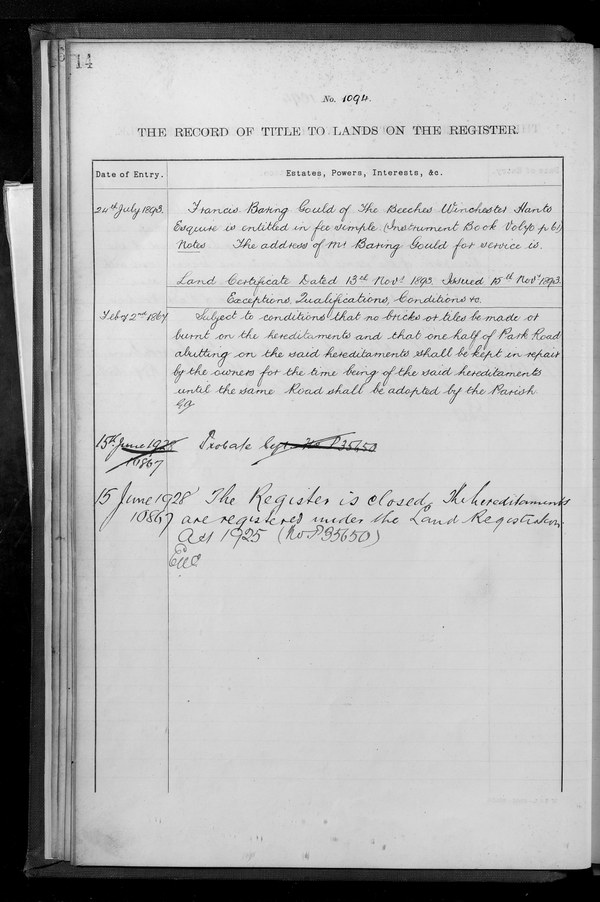 14
No. 1094.
THE RECORD OF TITLE TO LANDS ON THE REGISTER.
Date of Entry.
Estates, Powers, Interests, &c.
24th July 1893.
Francis Baring Gould of The Beeches Winchester Hants
Esquire is entitled in fee simple (Instrument Book Vol p 61)
Notes The address of Mr Baring Gould for service is.
Land Certificate Dated 13th Novr 1893. Issued 15th Novr 1893.
Exceptions, Qualifications, Conditions &c.
Feby 2nd 1867
Subject to conditions that no bricks or tiles be made or
burnt on the hereditaments and that one half of Park Road
abutting on the said hereditaments shall be kept in repair
by the owners for the time being of the said hereditaments
until the same Road shall be adopted by the Parish
15th June 1928
10867
Probate No P35650
15 June 1928
10867
The Register is closed, The hereditaments
are registered under the Land Registration
Act 1925 (No P.35650)